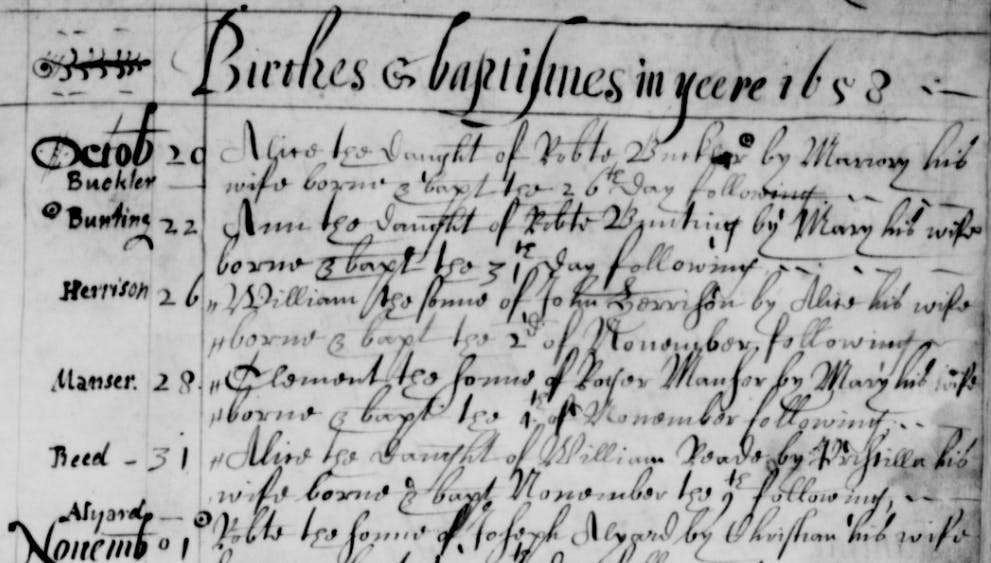 Birthes & baptismes in yeere 1658
Octob 20 Alice the daught of Robte Buckler by Mariory his
Buckler wife borne & bapt the 26th day following
Bunting 22 Ann the daught of Robte Bunting by Mary his wife
borne & bapt the 31th day following
Herrison 26 William the sonne of John Herrison by Alice his wife
borne & bapt the 2d of Nouember following
Manser. 28. Clement the sonne of Roger Manser by Mary his wife
borne & bapt the of Nouember following
Reed - 31 Alice the daught of William Reade by Priscilla his
wife borne & bapt Nouember the 9th following
Alyard
Nouemb 01 Robte the sonne of Joseph Alyard by Christian his wife